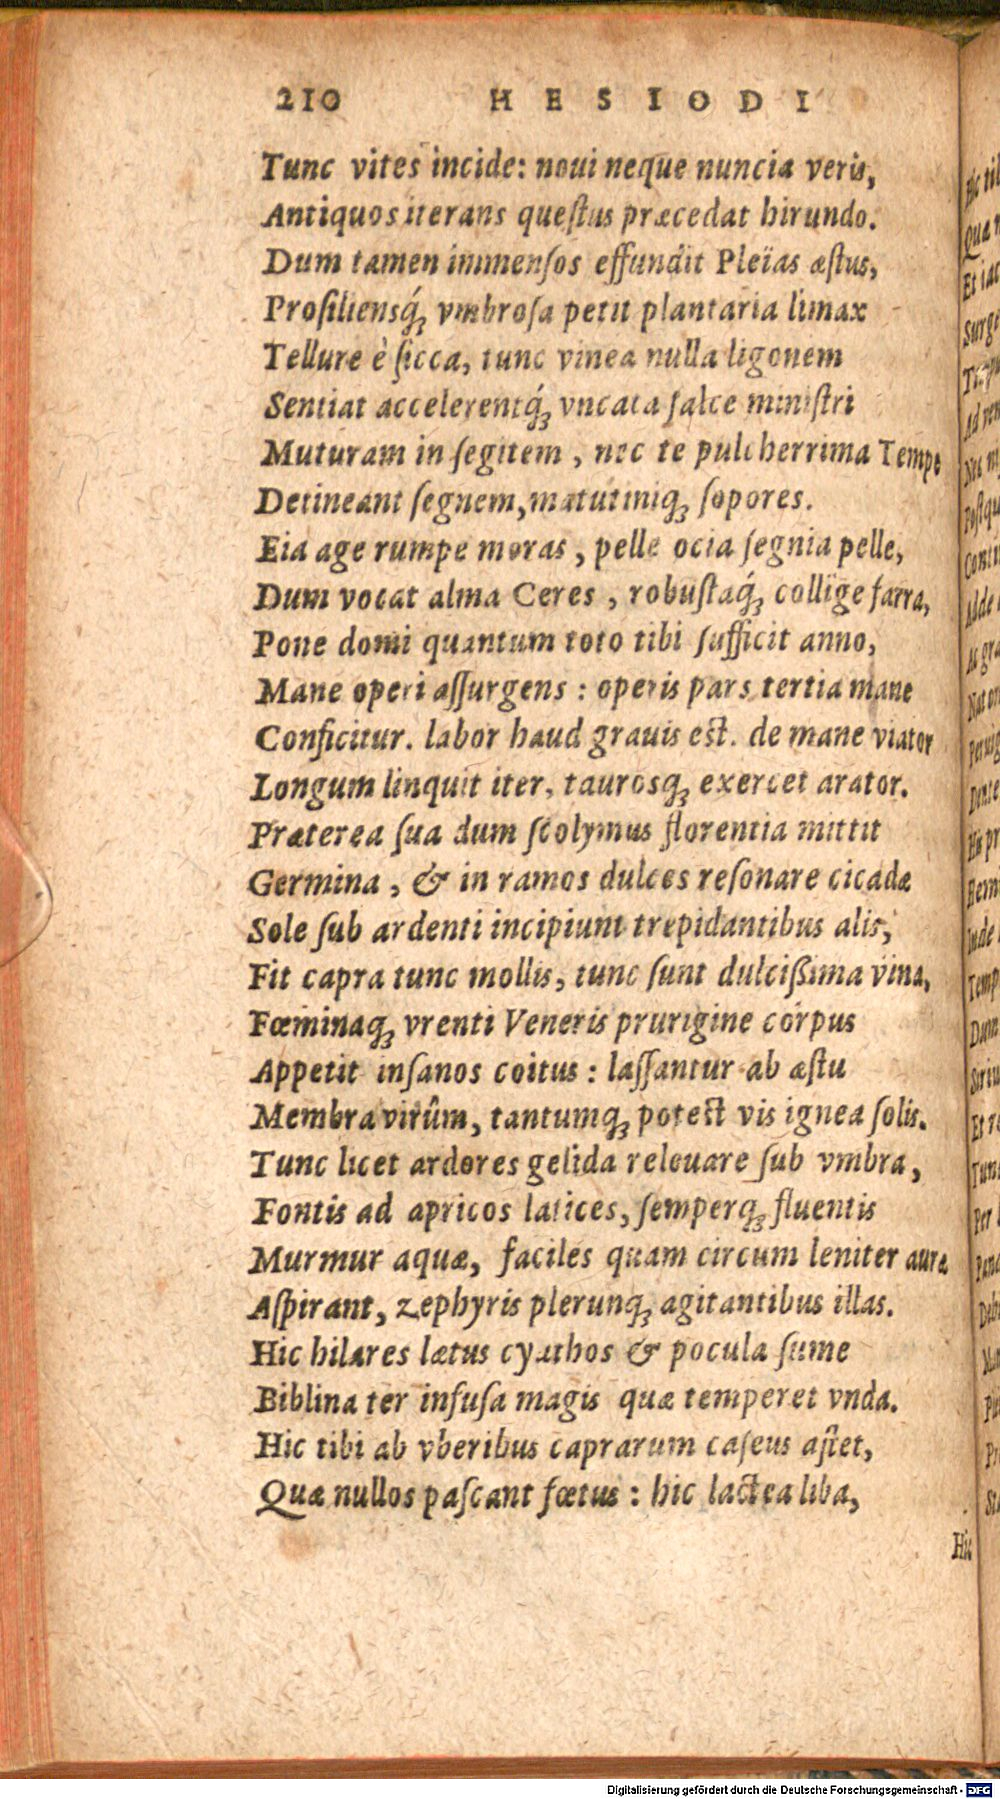 210 HESIODI
Tunc vites incide: noui neque nuncia veris,
Antiquos iterans questus præcedat hirundo.
Dum tamen immensos effundit Pleïas æstus,
Prosiliensq́; vmbrosa petit plantaria limax
Tellure è sicca, tunc vinea nulla ligonem
Sentiat accelerentq́; vncata falce ministri
Muturam in segitem, nec te pulcherrima Tempe
Detineant segnem, matutiniq; sopores.
Eia age rumpe moras, pelle ocia segnia pelle,
Dum vocat alma Ceres, robustaq́; collige farra,
Pone domi quantum toto tibi sufficit anno,
Mane operi assurgens: operis pars tertia mane
Conficitur. labor haud grauis est. de mane viator
Longum linquit iter, taurosq; exercet arator.
Præterea sua dum scolymus florentia mittit
Germina, & in ramos dulces resonare cicadæ
Sole sub ardenti incipiunt trepidantibus alis,
Fit capra tunc mollis, tunc sunt dulcißima vina,
Fœminaq; vrenti Veneris prurigine corpus
Appetit insanos coitus: lassantur ab æstu
Membra virûm, tantumq; potest vis ignea solis.
Tunc licet ardores gelida releuare sub vmbra,
Fontis ad apricos latices, semperq; fluentis
Murmur aquæ, faciles quam circum leniter auræ
Aspirant, zephyris plerunq; agitantibus illas.
Hic hilares lætus cyathos & pocula sume
Biblina ter infusa magis quæ temperet vnda.
Hic tibi ab vberibus caprarum caseus astet,
Quæ nullos pascant fœtus: hic lactea liba,
Hic
Digitalisierung gefördert durch die Deutsche Forschungsgemeinschaft - DFG